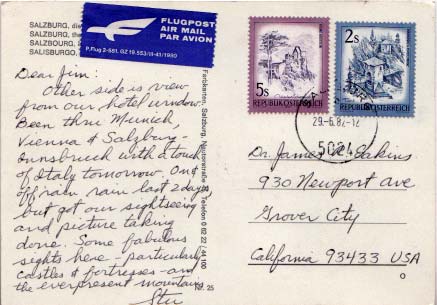 SALZBURG, die
SALZBURG, the
SALZBOURG, l
SALISBURGO,
FLUGPOST
AIR MAIL
PAR AVION
P.Flug 2-551. GZ 19.553/III-41/1980
Dear Jim:
Other side is view
from our hotel window.
Been thru Munich,
Vienna & Salzburg -
Innsbruck with a touch
of Italy tomorrow. On &
off rain rain last 2 days,
but got our sightseeing
and picture taking
done. Some fabulous
sights here - particularly
castles & fortresses - and
the everpresent mountains.
Stu
Farbkarten, Salzburg, Telefon 0 62 22 / 44 100
Nr. 25
5s
REPUBLIK ÖSTERREICH
2s
REPUBLIK ÖSTERREICH
29.-6.82-12
Dr. James Eakins
930 Newport ave
Grover City
California 93433 USA